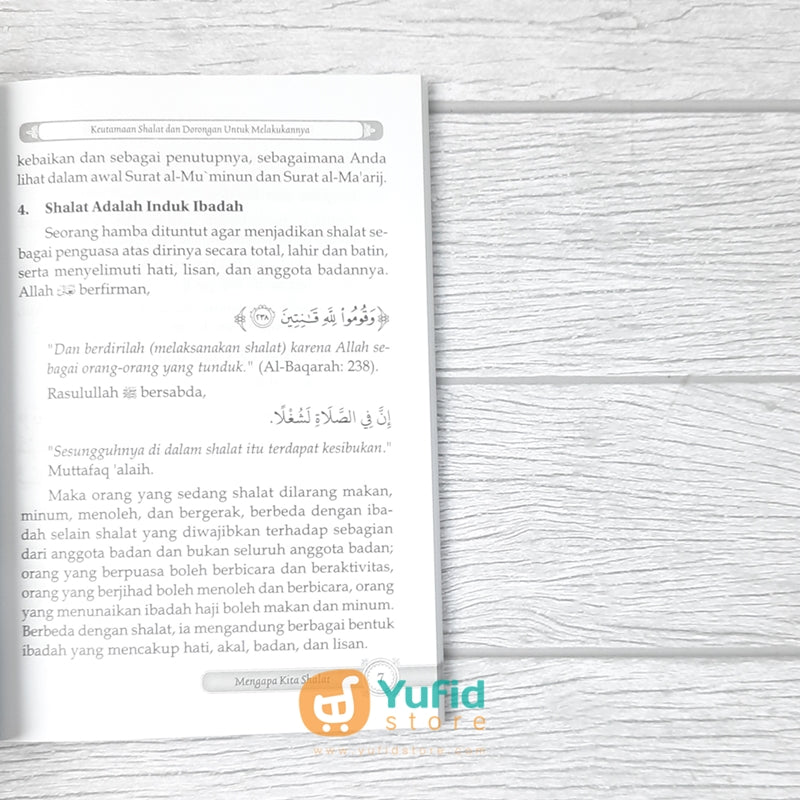 Keutamaan Shalat dan Dorongan Untuk Melakukannya
kebaikan dan sebagai penutupnya, sebagaimana Anda
lihat dalam awal Surat al-Mu`minun dan Surat al-Ma'arij.
4. Shalat Adalah Induk Ibadah
Seorang hamba dituntut agar menjadikan shalat se-
bagai penguasa atas dirinya secara total, lahir dan batin,
serta menyelimuti hati, lisan, dan anggota badannya.
Allah berfirman,
﴿وَقُومُواْ لِلَّهِ قَـٰنِتِينَ ٢٣٨﴾
"Dan berdirilah (melaksanakan shalat) karena Allah se-
bagai orang-orang yang tunduk." (Al-Baqarah: 238).
Rasulullah ﷺ bersabda,
إِنَّ فِي الصَّلَاةِ لَشُغْلًا.
"Sesungguhnya di dalam shalat itu terdapat kesibukan."
Muttafaq 'alaih.
Maka orang yang sedang shalat dilarang makan,
minum, menoleh, dan bergerak, berbeda dengan iba-
dah selain shalat yang diwajibkan terhadap sebagian
dari anggota badan dan bukan seluruh anggota badan;
orang yang berpuasa boleh berbicara dan beraktivitas,
orang yang berjihad boleh menoleh dan berbicara, orang
yang menunaikan ibadah haji boleh makan dan minum.
Berbeda dengan shalat, ia mengandung berbagai bentuk
ibadah yang mencakup hati, akal, badan, dan lisan.
Mengapa Kita Shalat 7
Yufid
store
www.yufidstore.com